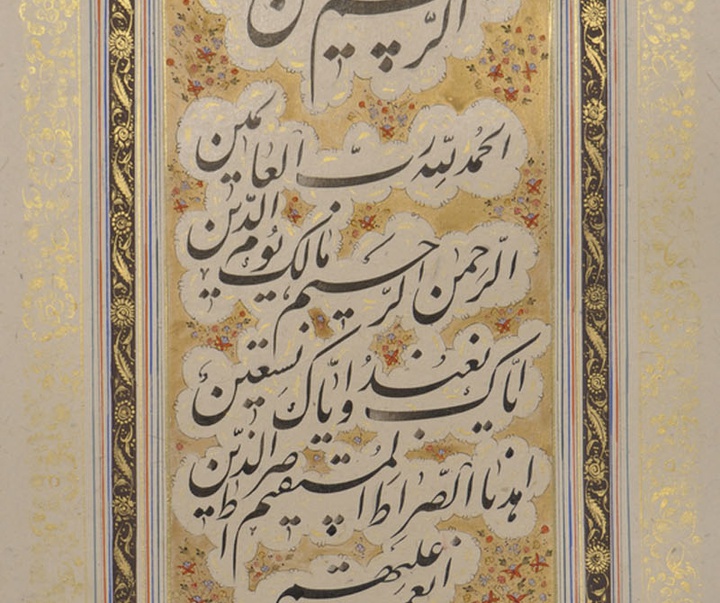 الرّحیم
الحمدُ للّٰه ربّ العالمین
الرّحمن الرّحیم مالک یوم الدّین
ایّاک نعبدُ وایّاک نستعین
اهدنا الصّراط المستقیم صراط الّذین
انعمت علیهم